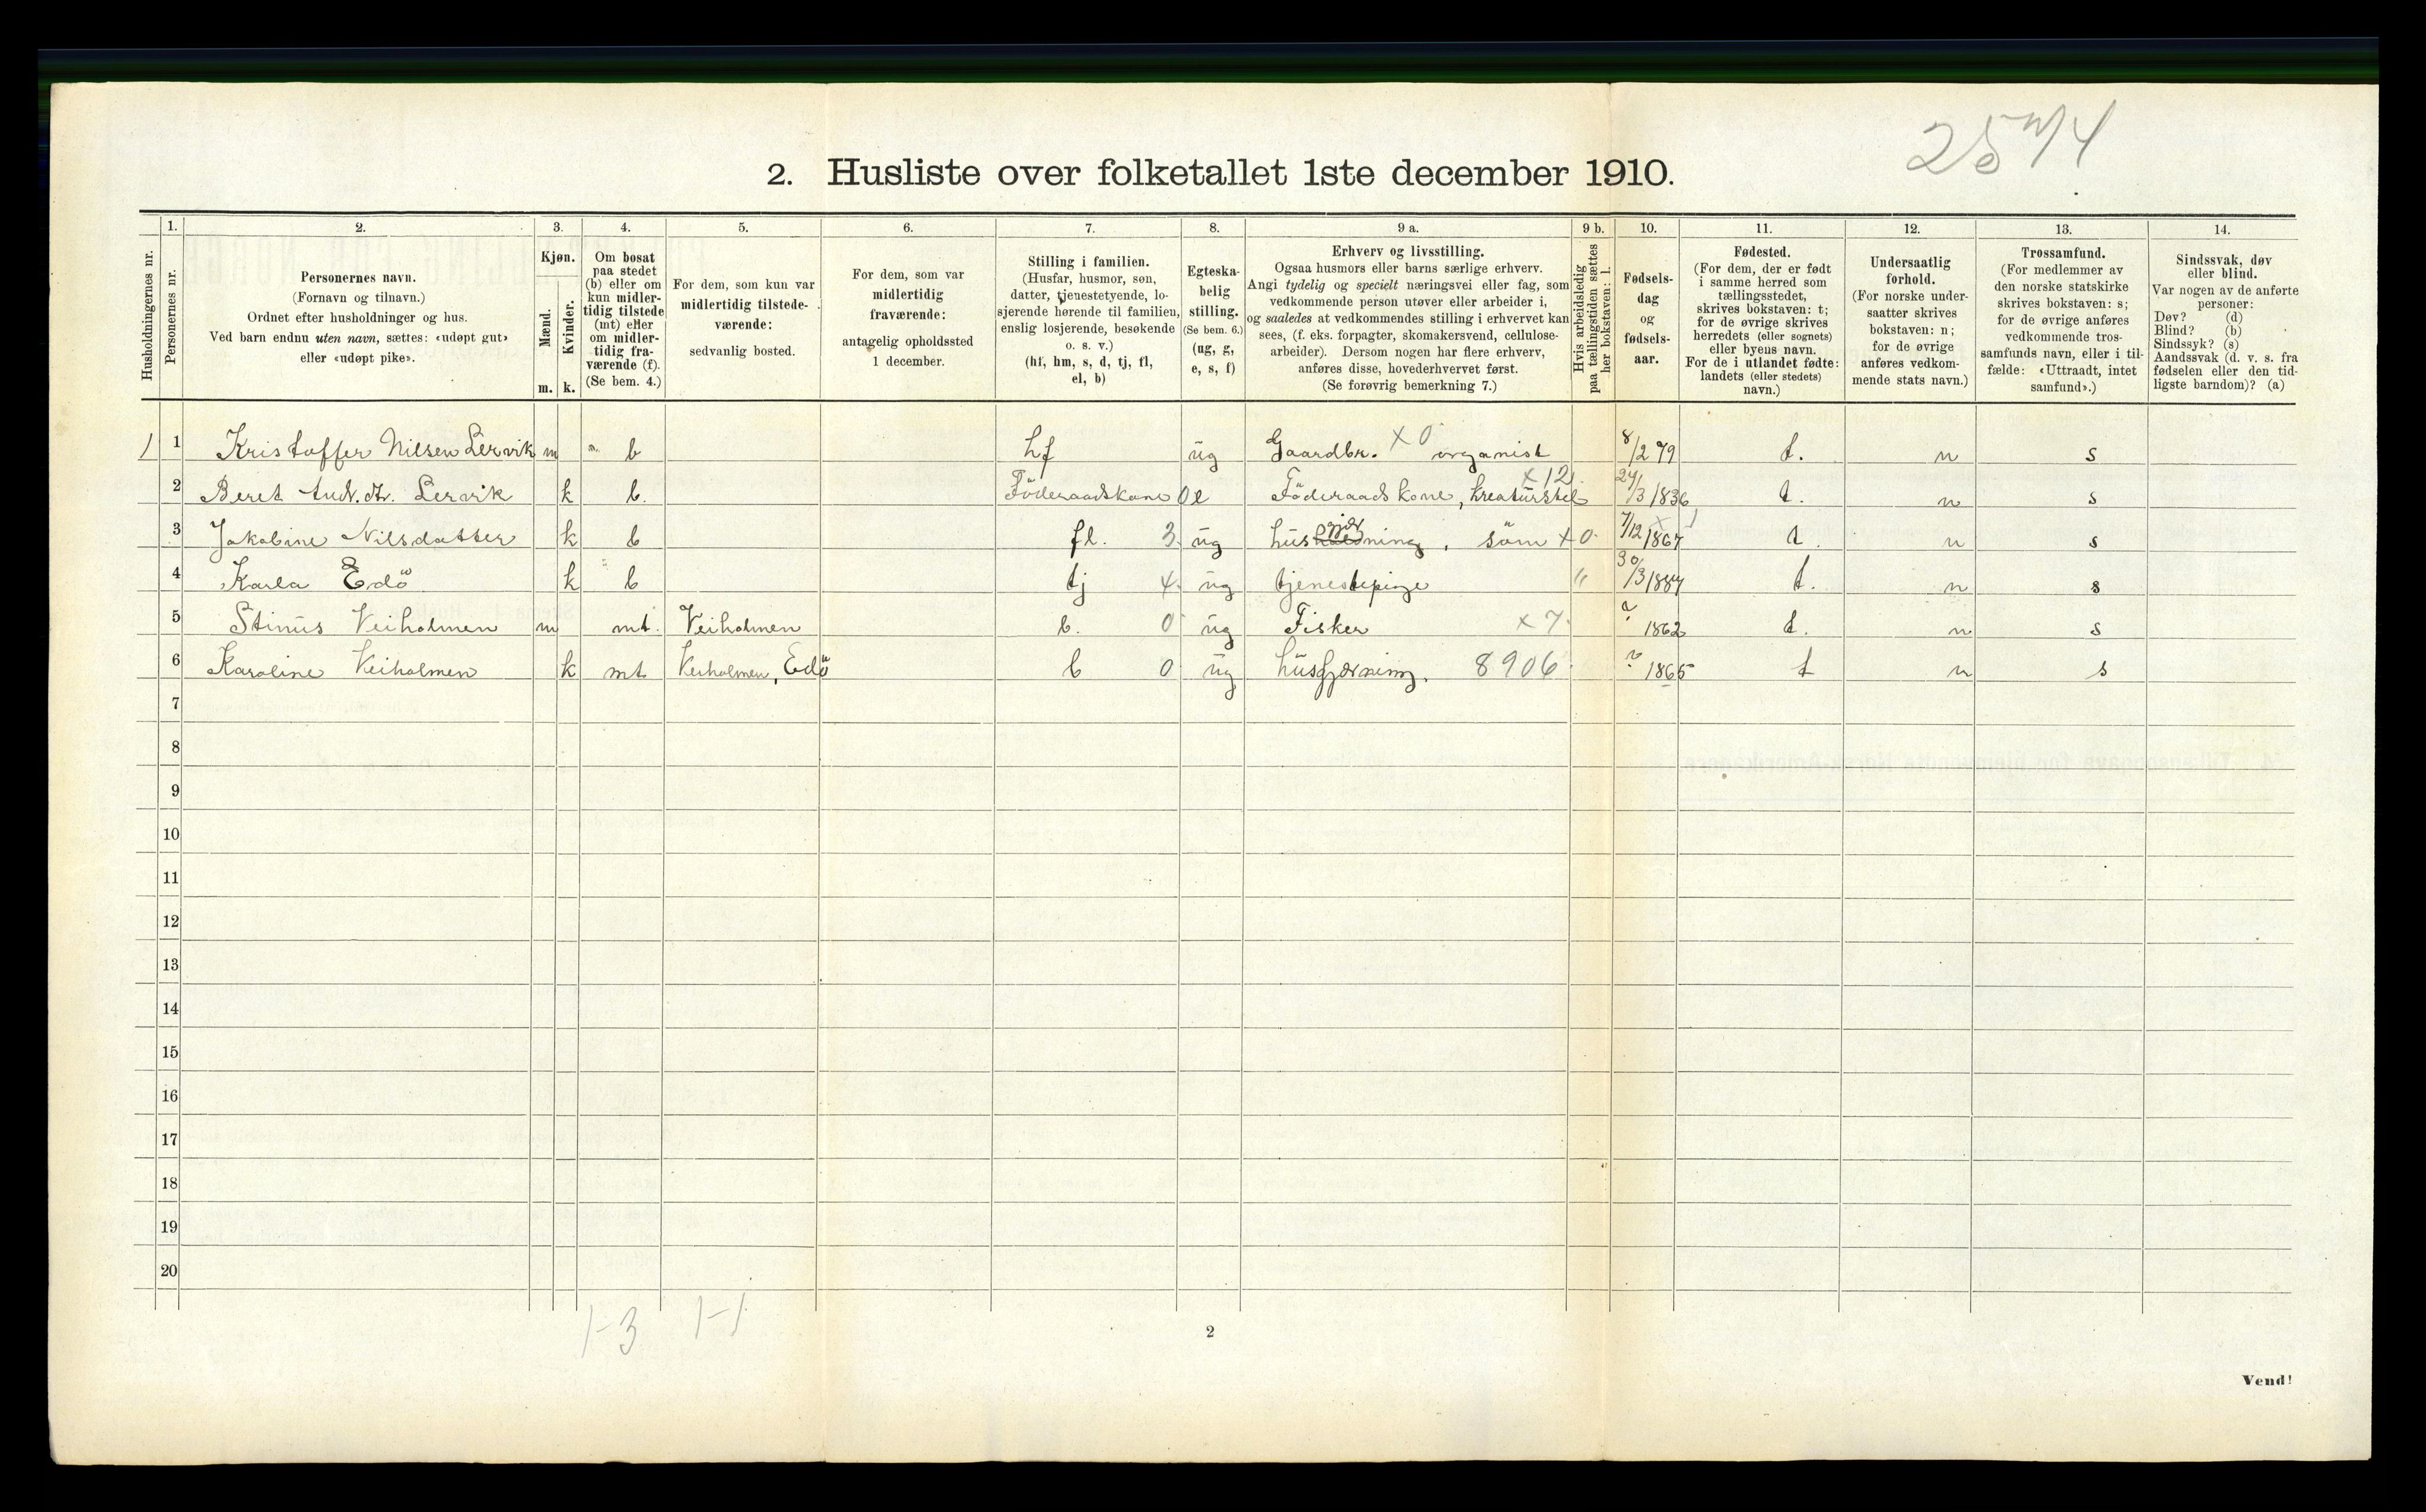 25 4
2. Husliste over folketallet 1ste december 1910.
Husholdningernes nr.
1. Personernes nr.
2. Personernes navn. (Fornavn og tilnavn.) Ordnet efter husholdninger og hus. Ved barn endnu uten navn, sættes: «udøpt gut» eller «udøpt pike».
3. Kjøn. Mænd. m. Kvinder. k.
4. Om bosat paa stedet (b) eller om kun midlertidig tilstede (mt) eller om midlertidig fraværende (f). (Se bem. 4.)
5. For dem, som kun var midlertidig tilstedeværende: sedvanlig bosted.
6. For dem, som var midlertidig fraværende: antagelig opholdssted 1 december.
7. Stilling i familien. (Husfar, husmor, søn, datter, tjenestetyende, losjerende hørende til familien, enslig losjerende, besøkende o. s. v.) (hf, hm, s, d, tj, fl, el, b)
8. Egteskabelig stilling. (Se bem. 6.) (ug, g, e, s, f)
9 a. Erhverv og livsstilling. Ogsaa husmors eller barns særlige erhverv. Angi tydelig og specielt næringsvei eller fag, som vedkommende person utøver eller arbeider i, og saaledes at vedkommendes stilling i erhvervet kan sees, (f. eks. forpagter, skomakersvend, cellulosearbeider). Dersom nogen har flere erhverv, anføres disse, hovederhvervet først. (Se forøvrig bemerkning 7.)
9 b. Hvis arbeidsledig paa tællingstiden sættes her bokstaven: l.
10. Fødselsdag og fødselsaar.
11. Fødested. (For dem, der er født i samme herred som tællingsstedet, skrives bokstaven: t; for de øvrige skrives herredets (eller sognets) eller byens navn. For de i utlandet fødte: landets (eller stedets) navn.)
12. Undersaatlig forhold. (For norske undersaatter skrives bokstaven: n; for de øvrige anføres vedkommende stats navn.)
13. Trossamfund. (For medlemmer av den norske statskirke skrives bokstaven: s; for de øvrige anføres vedkommende trossamfunds navn, eller i tilfælde: «Uttraadt, intet samfund».)
14. Sindssvak, døv eller blind. Var nogen av de anførte personer: Døv? (d) Blind? (b) Sindssyk? (s) Aandssvak (d. v. s. fra fødselen eller den tidligste barndom)? (a)
1 1 Kristoffer Nilsen Lervik m b hf ug Gaardbr. x 0 organist 8/2 79 t. n s
2 Beret And.dtr. Lervik k b. Föderaadskone 0 e Föderaadskone, kreaturstel x 12 24/3 1836 t. n s
3 Jakobine Nilsdatter k b fl. 3 ug husgjerning, söm x 0 7/12 1867 t. n s
4 Karla Edö k b tj 4 ug tjenestepige " 30/3 1887 t. n s
5 Stinus Veiholmen m mt. Veiholmen b. 0 ug Fisker x 7 ? 1862 t. n s
6 Karoline Veiholmen k mt Veiholmen, Edö b 0 ug husgjerning, 8906 ? 1865 t n s
7
8
9
10
11
12
13
14
15
16
17
18
19
20
1-3 1-1
2
Vend!